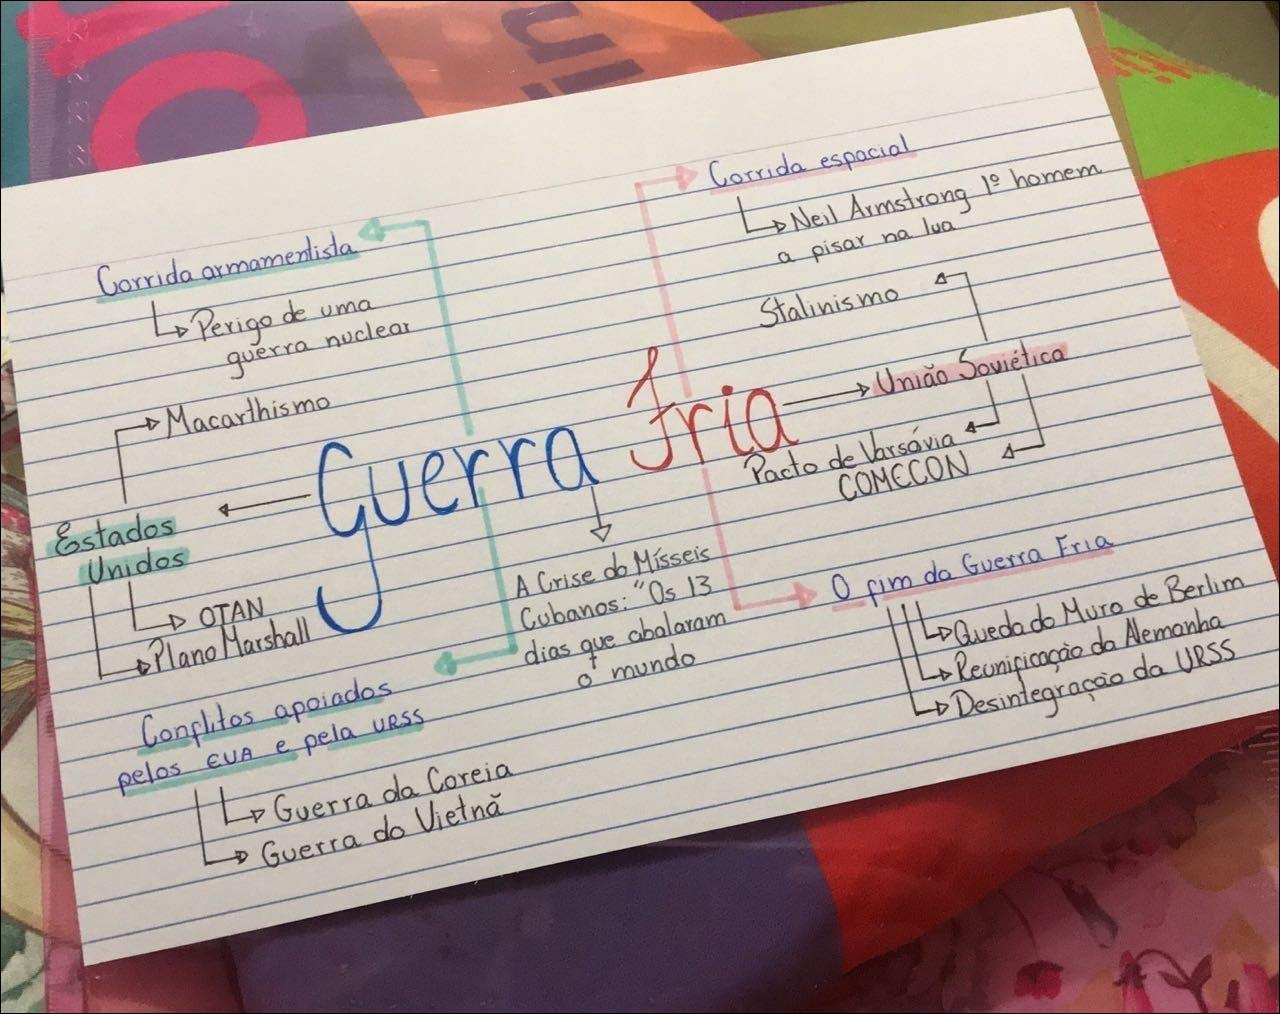 Corrida espacial
Neil Armstrong 1º homem
a pisar na lua
Corrida armamentista
Perigo de uma
guerra nuclear
Stalinismo
União Soviética
Macarthismo
Guerra Fria
Pacto de Varsóvia
COMECON
Estados
Unidos
OTAN
Plano Marshall
A Crise do Mísseis
Cubanos: "Os 13
dias que abalaram
o mundo
O fim da Guerra Fria
Queda do Muro de Berlim
Reunificação da Alemanha
Desintegração da URSS
Conflitos apoiados
pelos EUA e pela URSS
Guerra da Coreia
Guerra do Vietnã